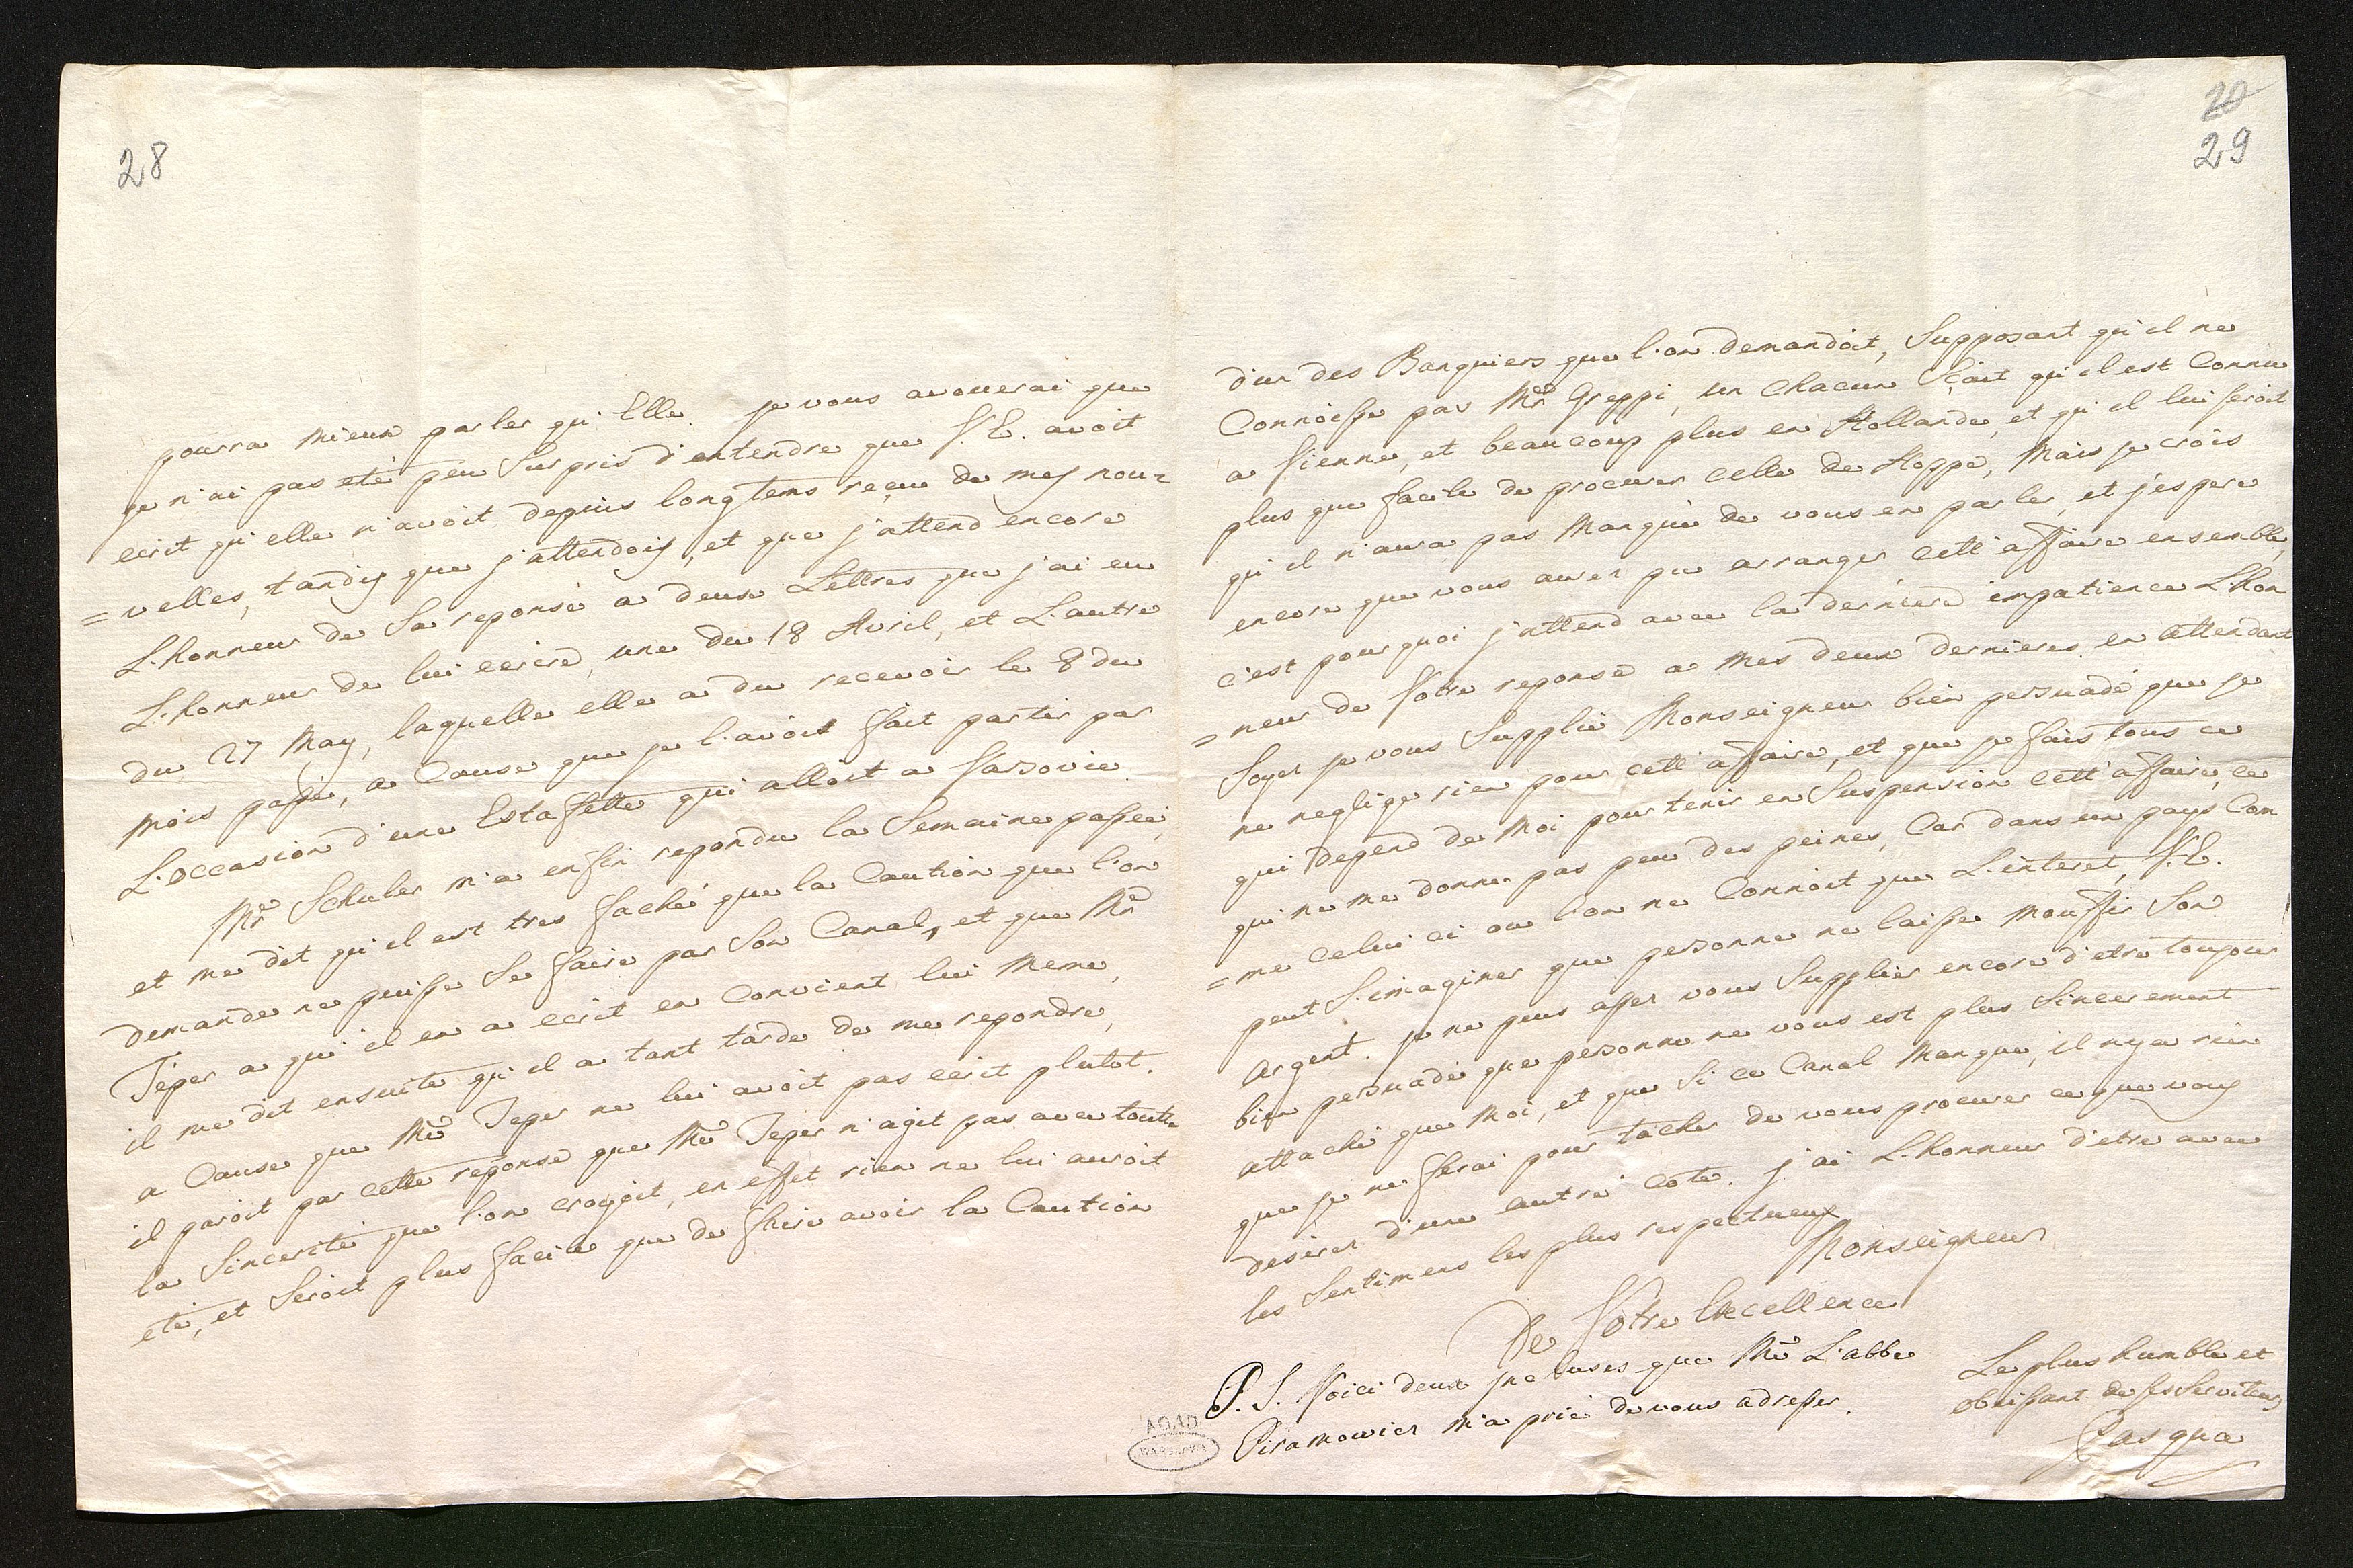 28
pourra mieux parler qu'Elle. je vous avouerai que
je n'ai pas eté peu Surpris d'entendre que V. E. avoit
ecrit qu'elle n'avoit depuis longtems reçue de mes nou=
=velles, tandis que j'attendois, et que j'attend encore
L'honneur de Sa reponse a deux Lettres que j'ai eu
L'honneur de lui ecrire, une du 18 Avril, et L'autre
du 27 May, laquelle elle a du recevoir le 8 du
mois passé, a Cause que je l'avois fait partir par
L'occasion d'une Estafette qui alloit a Varsovie.
Mr Schuler m'a enfin repondu la Semaine passée,
et me dit qu'il est tres faché que la Caution que l'on
demande ne puisse Se faire par Son Canal, et que Mr
Teper a qui il en a ecrit en Convient lui meme,
il me dit ensuite qu'il a tant tardé de me repondre,
a Cause que Mr Teper ne lui avoit pas ecrit plutot.
il paroit par cette reponse que Mr Teper n'agit pas avec toute
la Sincerité que l'on croyoit, en effet rien ne lui auroit
eté, et Seroit plus facile que de faire avoir la Caution
20
29
d'un des Banquiers que l'on demandoit, Supposant qu'il ne
Connoisse pas Mr Greppi, un chacun Sçait qu'il est Connu
a Vienne, et beaucoup plus en Hollande, et qu'il lui seroit
plus que facile de procurer celle de Hoppe, Mais je crois
qu'il n'aura pas Manqué de vous en parler, et j'espere
encore que vous aurez pu arranger cett'affaire ensemble,
c'est pourquoi j'attend avec la derniere impatience L'hon
=neur de Votre reponse a mes deux dernieres, en attendant
Soyez je vous Supplie Monseigneur bien persuadé que je
ne neglige rien pour cett'affaire, et que je fais tous ce
qui depend de Moi pour tenir en Suspension cett'affaire, ce
qui ne me donne pas peu des peines, Car dans un pays Com
=me celui ci ou l'on ne Connoit que L'interet, V. E.
peut S'imaginer que personne ne laisse mouffir Son
argent. je ne peus assez vous Supplier encore d'etre toujour
bien persuadé que personne ne vous est plus Sincerement
attaché que Moi, et que Si ce Canal manque, il n'y a rien
que je ne ferai pour tâcher de vous procurer ce que vous
desirez d'une autre coté. j'ai L'honneur d'etre avec
les Sentimens les plus respectueux
Monseigneur
De Votre Excellence
P. S. Voici deux incluses que Mr L'abbé
Piramowicz m'a prié de vous adresser.
Le plus humble et
obeissant de ses Serviteurs
Pasqua
AGAD
WARSZAWA